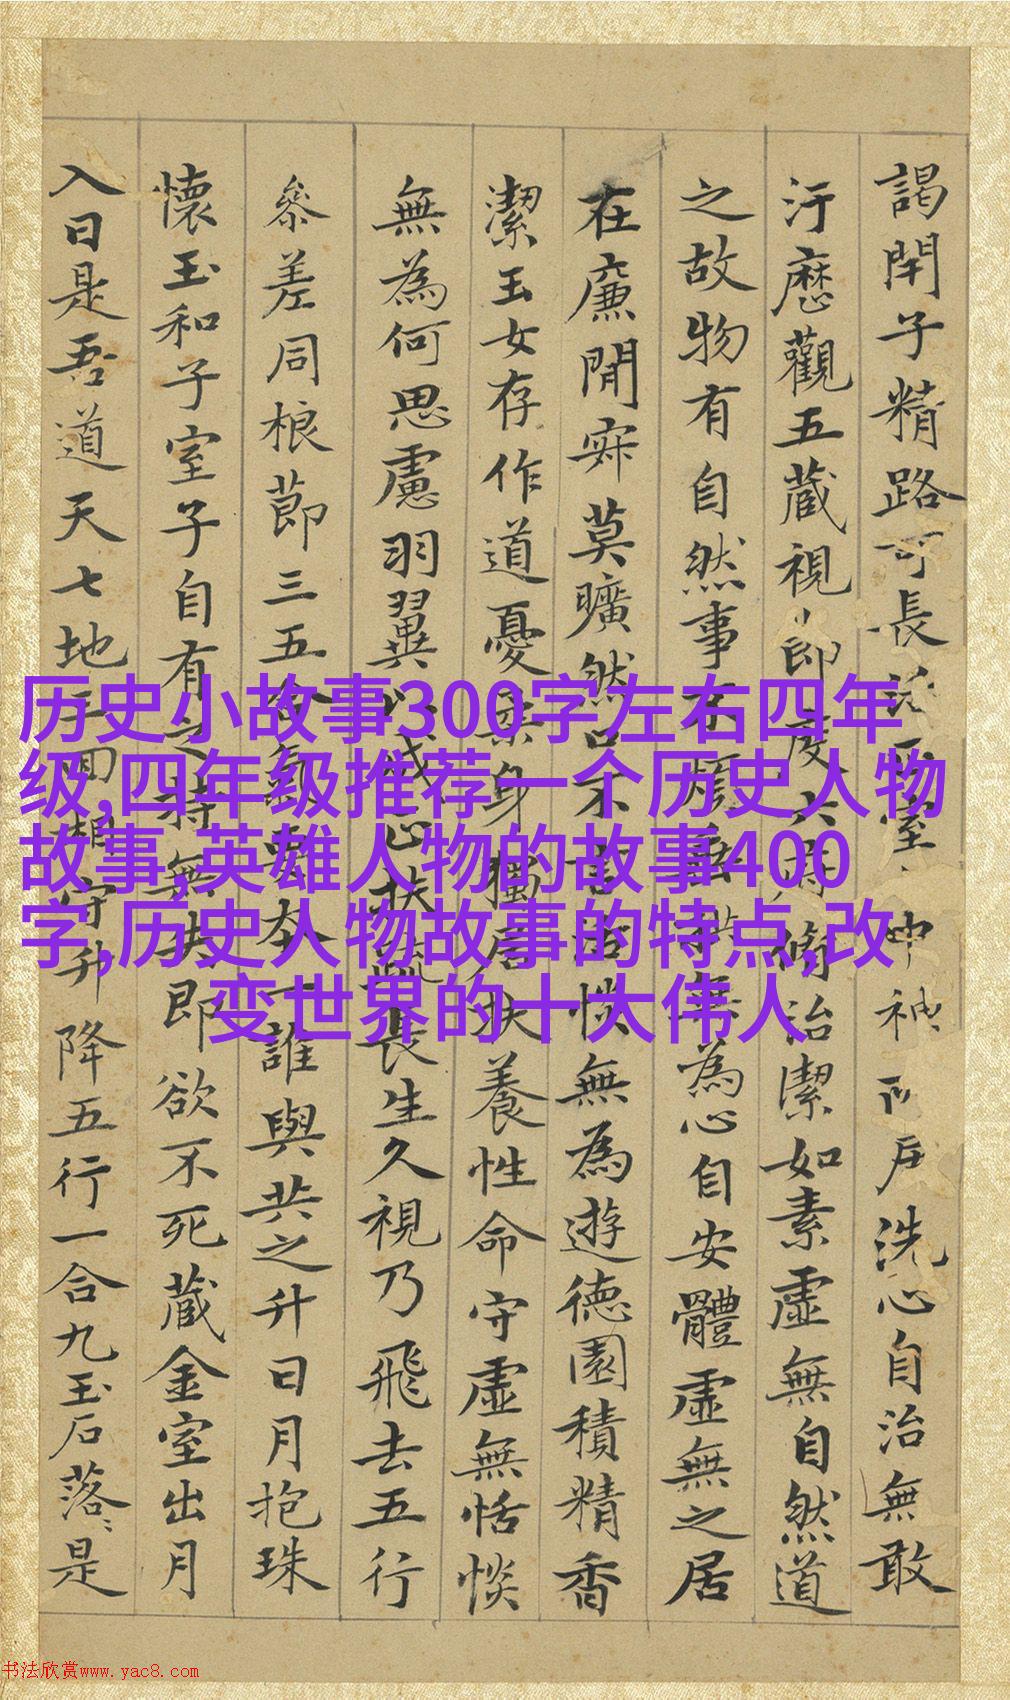 謁閇子精路可長活
神神
户洗心自治無敢
汙歷觀五藏視節度六府脩治潔如素虛無自然道
之故物有自然事不煩無為心自安體虛無之居
在廉閒寂莫曠然口不言恬惔無為遊德園積精香
潔玉女存作道憂柔身獨居扶養性命守虛無恬惔
無為何思慮羽翼以成正扶疏長生久視乃飛去五行
參差同根節三五合氣要本一誰與共之升日月抱珠
懷玉和子室子自有之持無失即欲不死藏金室出月
入日是吾道天七地三回相守升降五行一合九玉石落落是
历史小故事300字左右四年
级,四年级推荐一个历史人物
故事,英雄人物的故事400
字,历史人物故事的特点,改
变世界的十大伟人
书法欣赏www.yac8.com